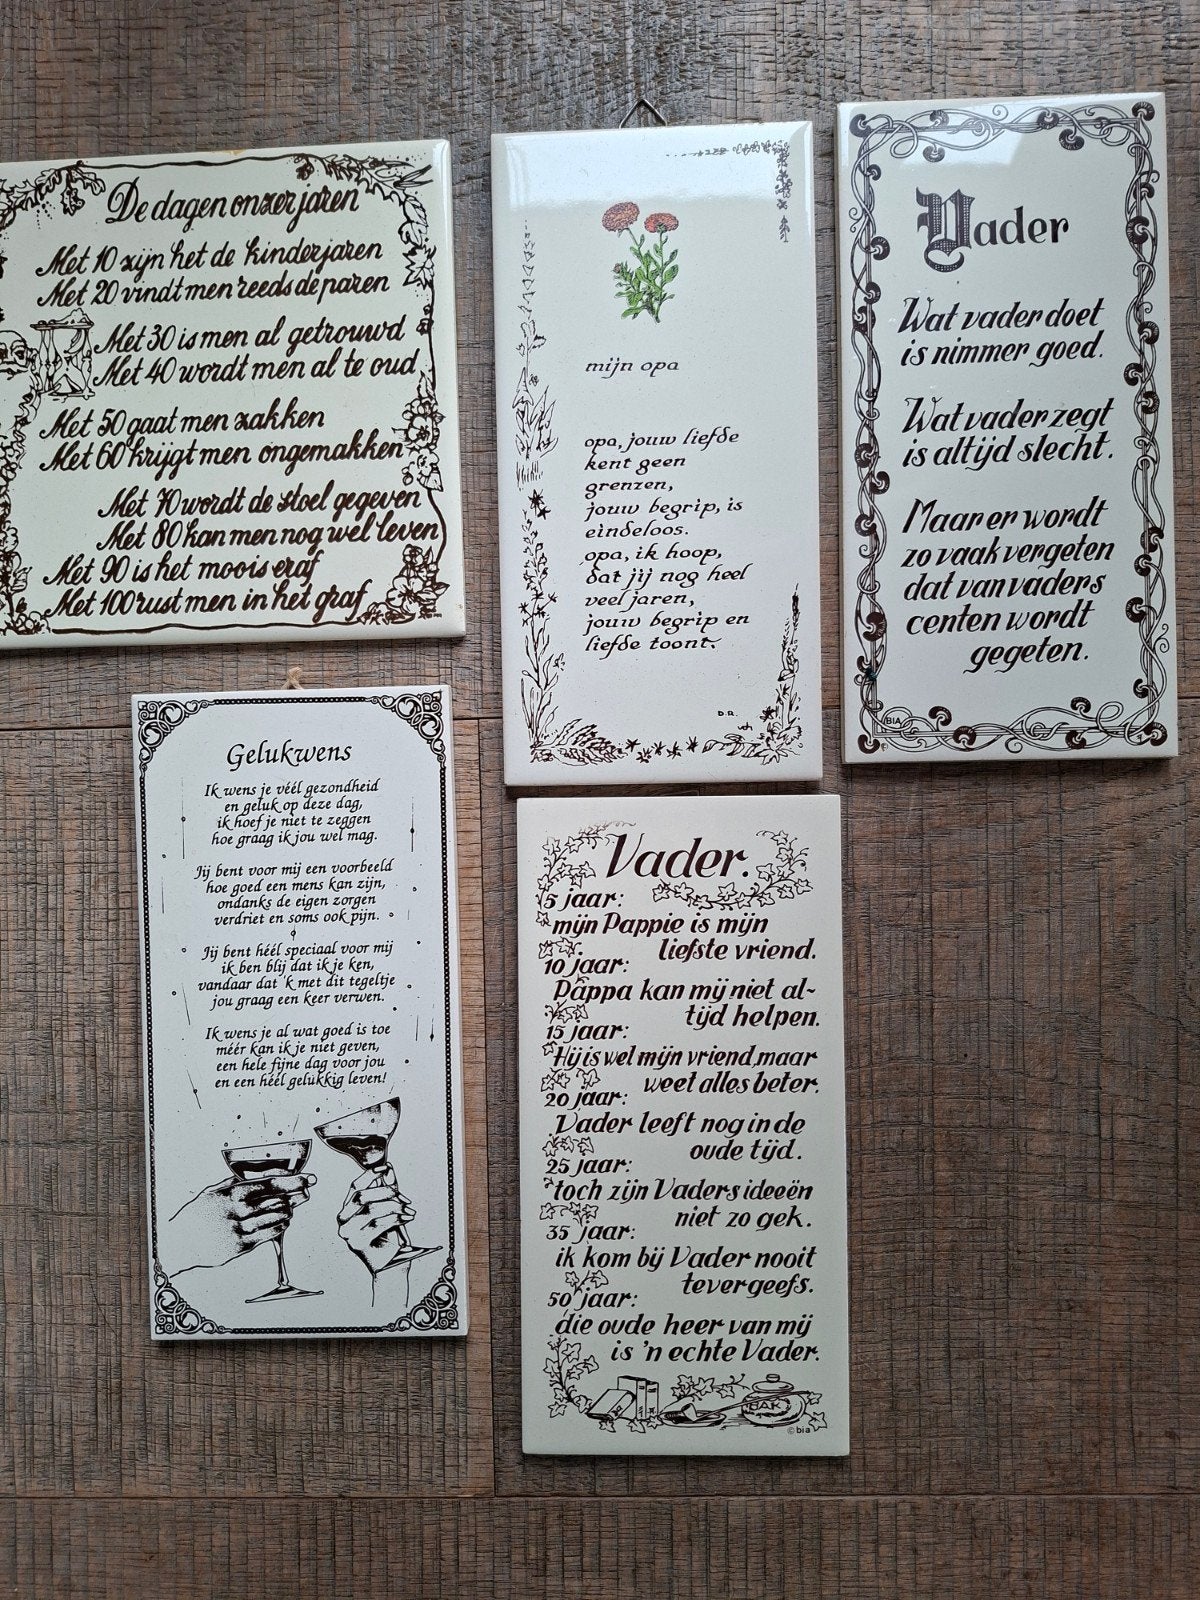 De dagen onzer jaren
Met 10 zijn het de kinderjaren
Met 20 vindt men reeds de paren
Met 30 is men al getrouwd
Met 40 wordt men al te oud
Met 50 gaat men zakken
Met 60 krijgt men ongemakken
Met 70 wordt de stoel gegeven
Met 80 kan men nog wel leven
Met 90 is het moois eraf
Met 100 rust men in het graf
mijn opa
opa, jouw liefde
kent geen
grenzen,
jouw begrip, is
eindeloos.
opa, ik hoop,
dat jij nog heel
veel jaren,
jouw begrip en
liefde toont.
D.R.
Vader
Wat vader doet
is nimmer goed.
Wat vader zegt
is altijd slecht.
Maar er wordt
zo vaak vergeten
dat van vaders
centen wordt
gegeten.
BIA
Gelukwens
Ik wens je véél gezondheid
en geluk op deze dag,
ik hoef je niet te zeggen
hoe graag ik jou wel mag.
Jij bent voor mij een voorbeeld
hoe goed een mens kan zijn,
ondanks de eigen zorgen
verdriet en soms ook pijn.
Jij bent héél speciaal voor mij
ik ben blij dat ik je ken,
vandaar dat 'k met dit tegeltje
jou graag een keer verwen.
Ik wens je al wat goed is toe
méér kan ik je niet geven,
een hele fijne dag voor jou
en een héél gelukkig leven!
Vader.
5 jaar:
mijn Pappie is mijn
liefste vriend.
10 jaar:
Pappa kan mij niet al~
tijd helpen.
15 jaar:
Hij is wel mijn vriend, maar
weet alles beter.
20 jaar:
Vader leeft nog in de
oude tijd.
25 jaar:
toch zijn Vaders ideeën
niet zo gek.
35 jaar:
ik kom bij Vader nooit
tevergeefs.
50 jaar:
die oude heer van mij
is 'n echte Vader.
BAK
© bia